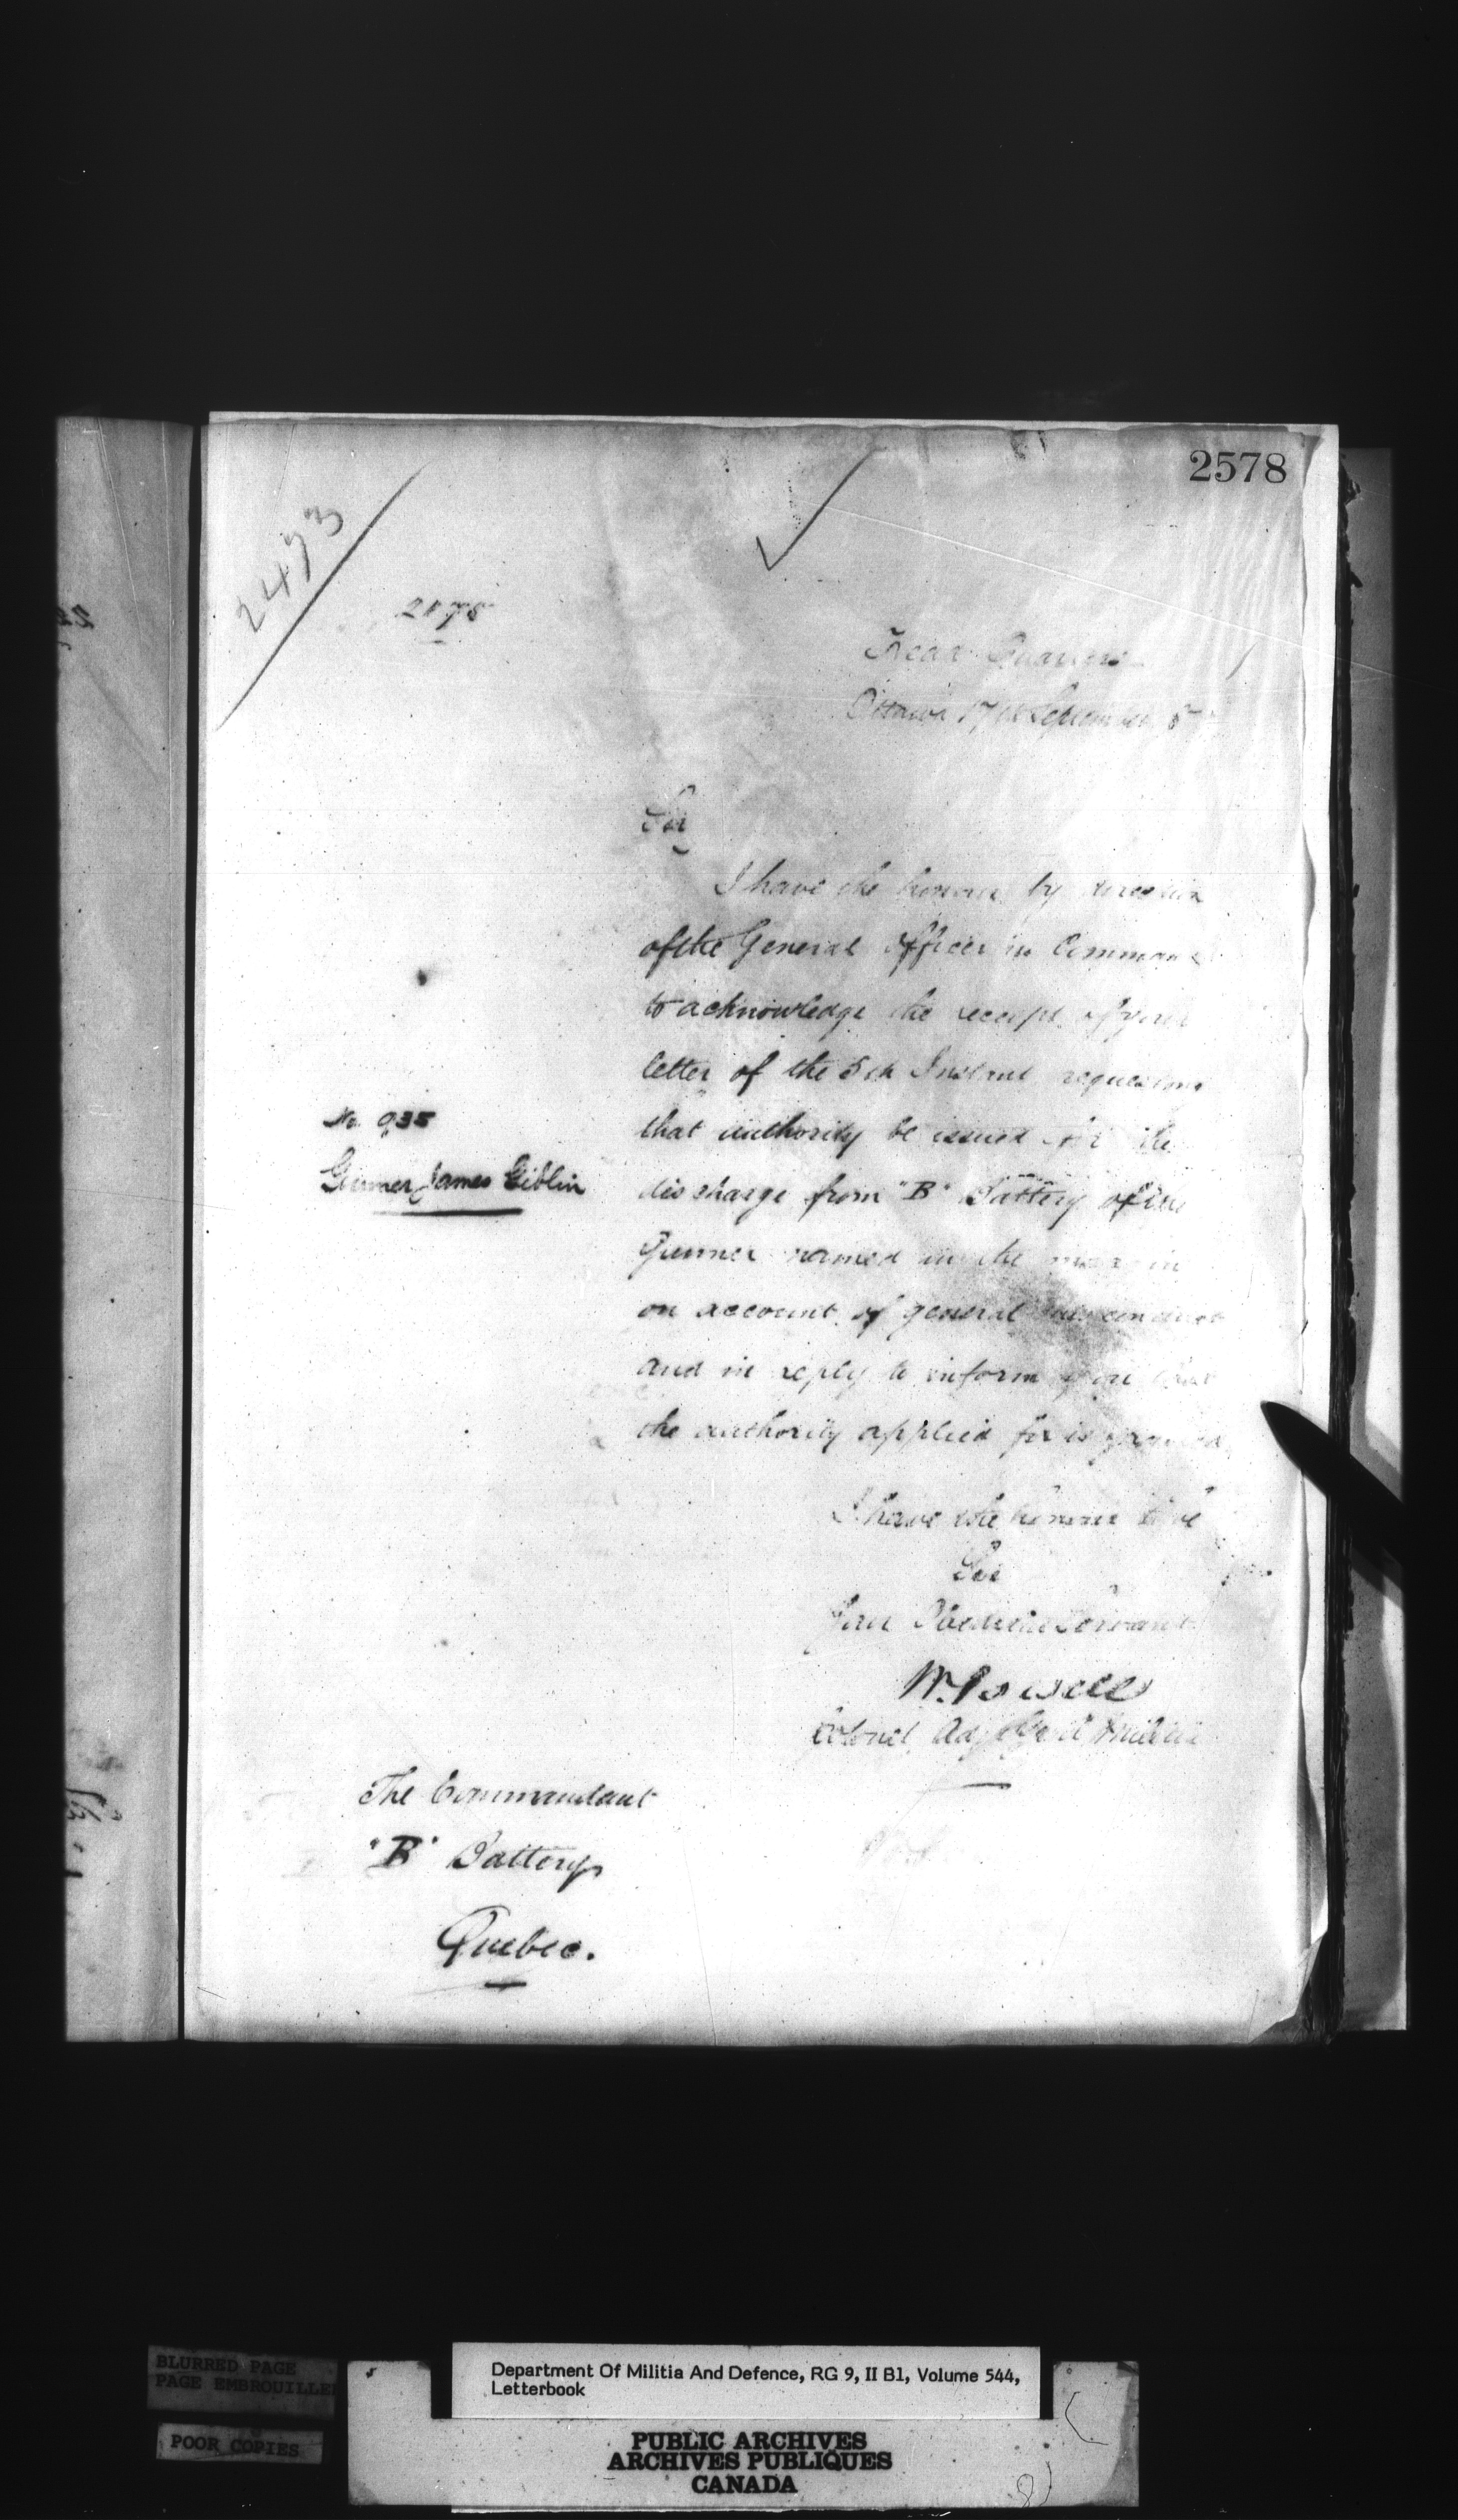 2578
2493
Head Quarters
Ottawa 17th September
Sir
I have the honour by direction
of the General Officer in Command
to acknowledge the receipt of your
letter of the 5th Instant requesting
No. 935
that authority be issued for the
Gunner James Giblin
discharge from "B" Battery of the
Gunner named in the margin
on account of general misconduct
and in reply to inform you that
the authority applied for is granted
I have the honour to be
Sir
Your Obedient Servant
W. Powell
Colonel Adjt Genl Militia
The Commandant
"B" Battery
Quebec.
BLURRED PAGE
PAGE EMBROUILLEE
POOR COPIES
Department Of Militia And Defence, RG 9, II B1, Volume 544,
Letterbook
PUBLIC ARCHIVES
ARCHIVES PUBLIQUES
CANADA